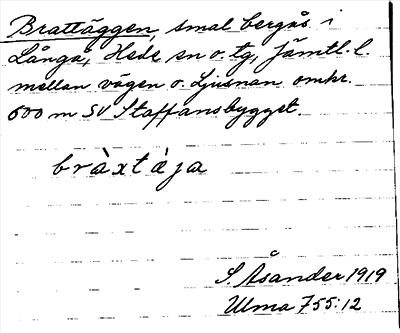 Brattäggen, smal bergås i
Långå, Hede sn o. tg, Jämtl. l.
mellan vägen o. Ljusnan omkr.
600 m SV Staffansbygget.
bràxtàja
S. Åsander 1919
Ulma 755:12